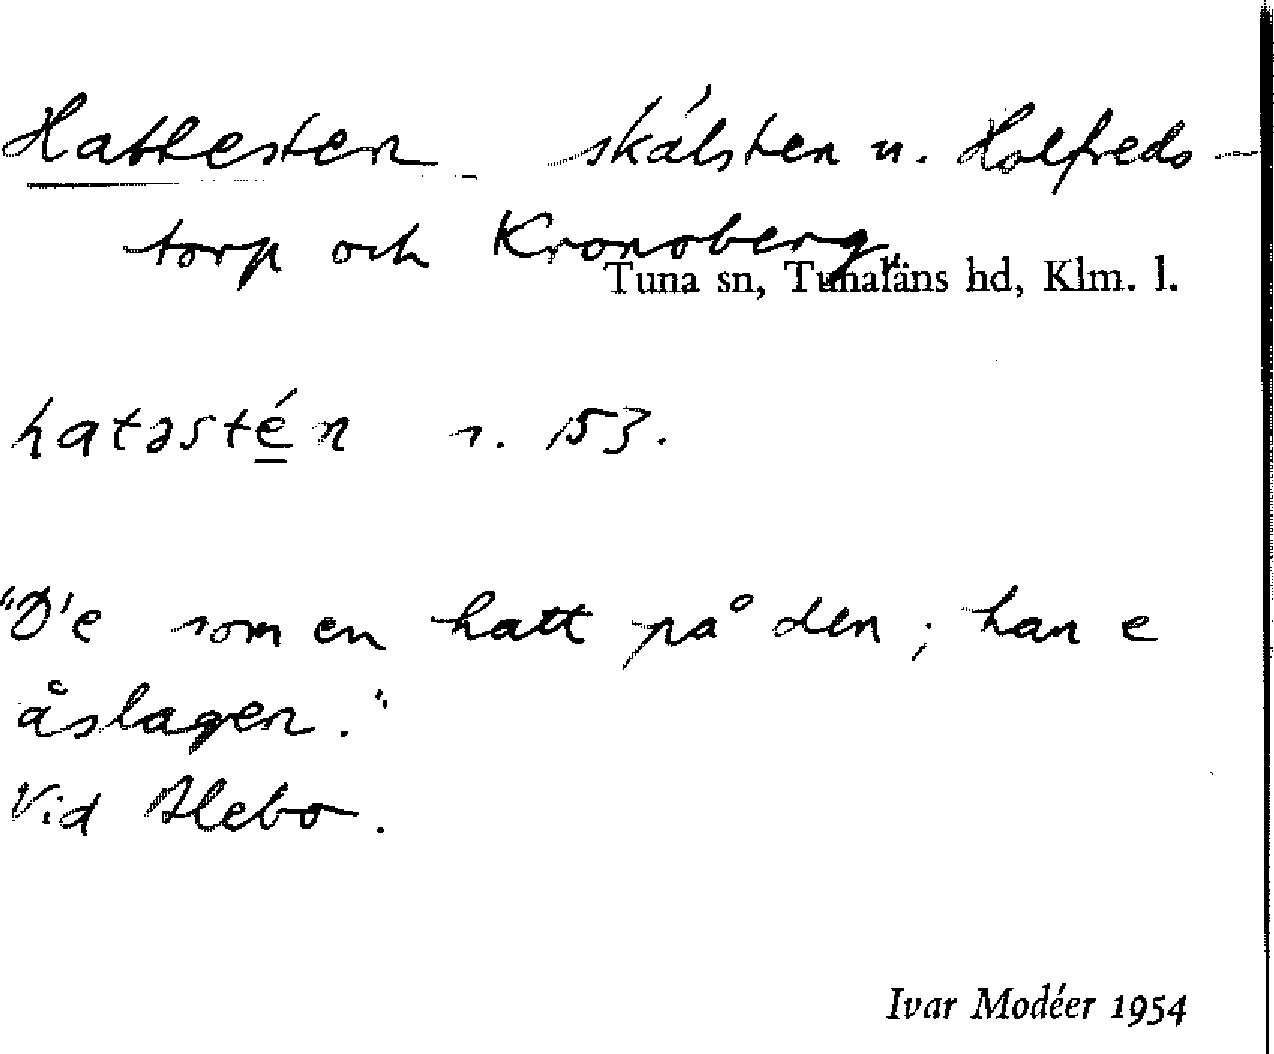 Hattesten skälsten n. Holfreds-
torp och Kronoberg.
Tuna sn, Tunaläns hd, Klm. l.
hatəstén s. 153.
"D'e som en hatt på den; han e
åslagen."
Vid Alebo.
Ivar Modéer 1954